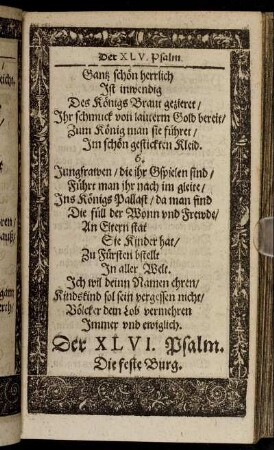 Der XLV. Psalm.
Gantz schön herrlich
Ist inwendig
Des Königs Braut gezieret/
Ihr schmuck von lauterm Gold bereit/
Zum König man sie führet/
Im schön gestickten Kleid.
6.
Jungfrawen/ die ihr Gspielen sind/
Führt man jhr nach im gleite/
Ins Königs Pallast/ da man find
Die füll der Wonn vnd Frewde/
An Eltern stat
Sie Kinder hat/
Zu Fürsten bstellt
In aller Welt.
Ich wil deinn Namen ehren/
Kindskind sol sein vergessen nicht/
Völcker dein Lob vermehren
Immer vnd ewiglich.
Der XLVI. Psalm.
Die feste Burg.